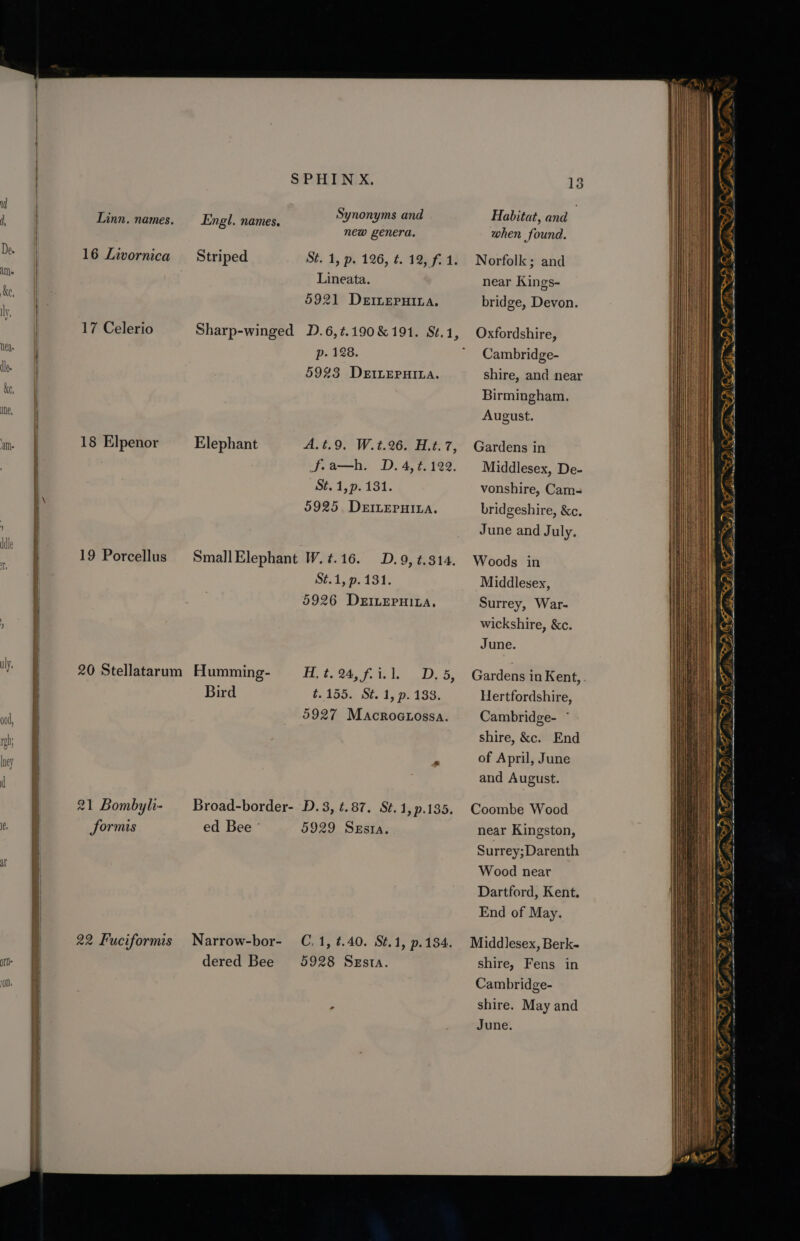 SPHINX. 13
Linn. names. Engl. names. Synonyms and new genera. Habitat, and when found.
16 Livornica Striped St. 1, p. 126, t. 12, f. 1. Norfolk; and
Lineata. near Kings-
5921 DEILEPHILA. bridge, Devon.
17 Celerio Sharp-winged D. 6, t. 190 & 191. St. 1, Oxfordshire,
p. 128. Cambridge-
5923 DEILEPHILA. shire, and near
Birmingham.
August.
18 Elpenor Elephant A. t. 9. W. t. 26. H. t. 7, Gardens in
f. a—h. D. 4, t. 122. Middlesex, De-
St. 1, p. 131. vonshire, Cam-
5925 DEILEPHILA. bridgeshire, &c.
June and July.
19 Porcellus Small Elephant W. t. 16. D. 9, t. 314. Woods in
St. 1, p. 131. Middlesex,
5926 DEILEPHILA. Surrey, War-
wickshire, &c.
June.
20 Stellatarum Humming- H. t. 24, f. i. l. D. 5, Gardens in Kent,
Bird t. 155. St. 1, p. 133. Hertfordshire,
5927 MACROGLOSSA. Cambridge-
shire, &c. End
of April, June
and August.
21 Bombyli- Broad-border- D. 3, t. 87. St. 1, p. 135. Coombe Wood
formis ed Bee 5929 SESIA. near Kingston,
Surrey; Darenth
Wood near
Dartford, Kent.
End of May.
22 Fuciformis Narrow-bor- C. 1, t. 40. St. 1, p. 134. Middlesex, Berk-
dered Bee 5928 SESIA. shire, Fens in
Cambridge-
shire. May and
June.